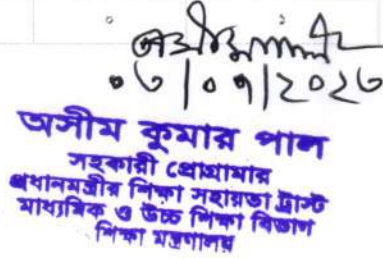 ০৬/০৭/২০২৩
অসীম কুমার পাল
সহকারী প্রোগ্রামার
প্রধানমন্ত্রীর শিক্ষা সহায়তা ট্রাস্ট
মাধ্যমিক ও উচ্চ শিক্ষা বিভাগ
শিক্ষা মন্ত্রণালয়